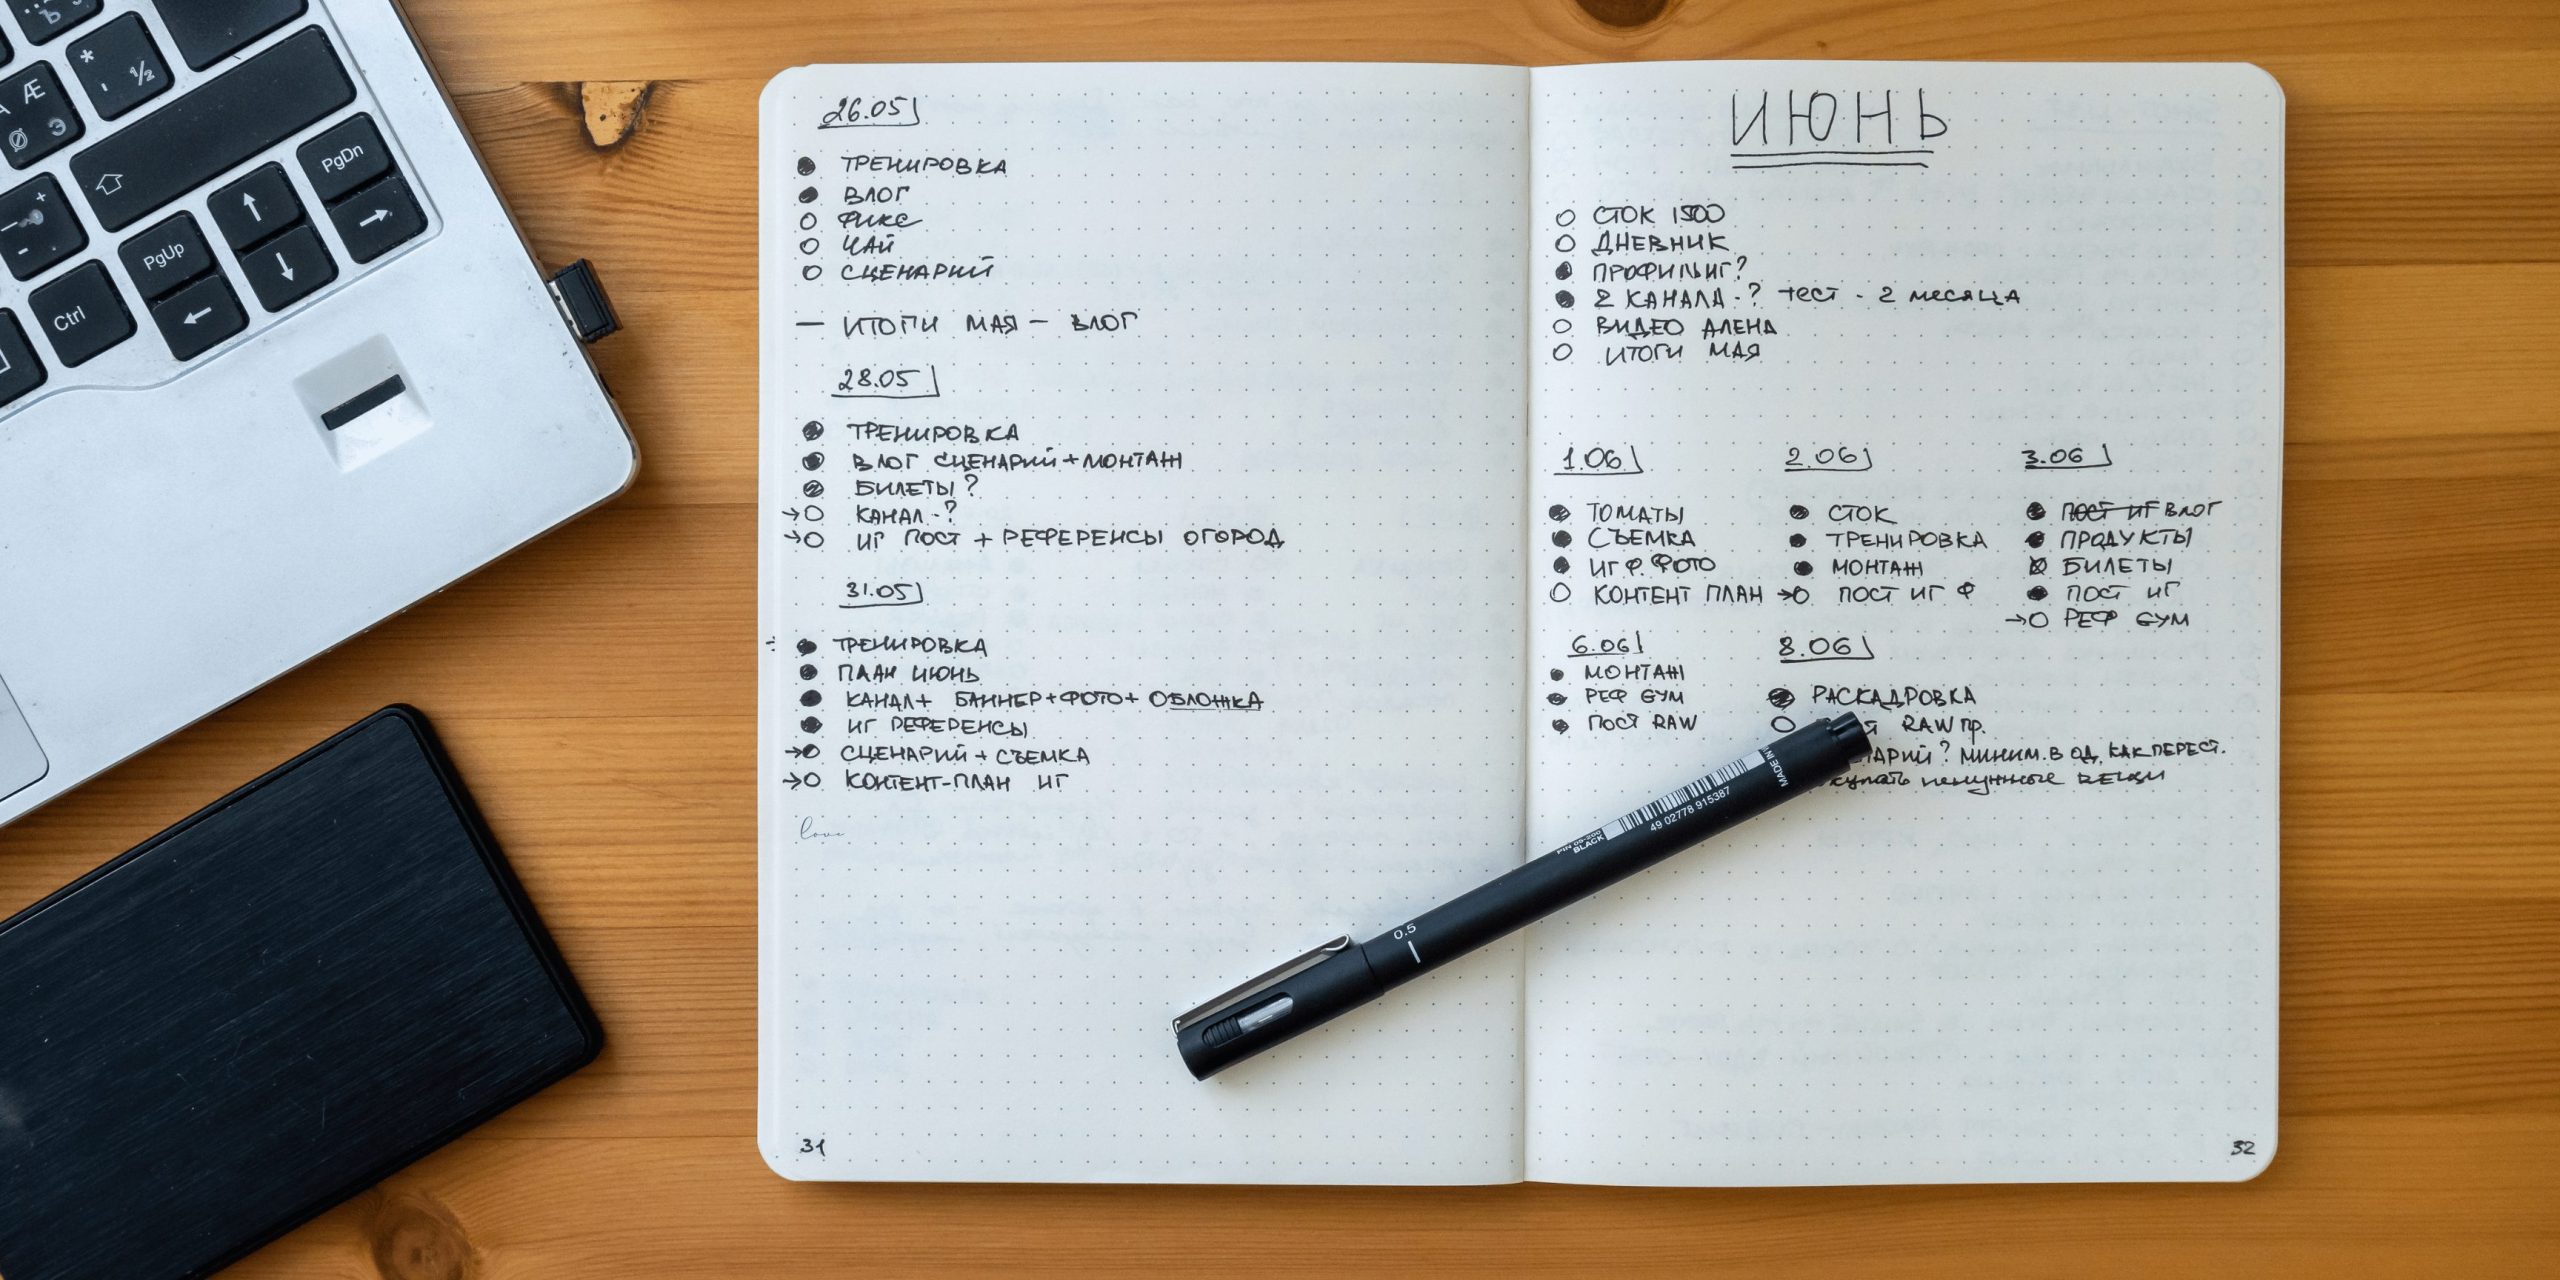 26.05
ТРЕНИРОВКА
ВЛОГ
ФИКС
ЧАЙ
СЦЕНАРИЙ
— ИТОГИ МАЯ — ВЛОГ
28.05
ТРЕНИРОВКА
ВЛОГ СЦЕНАРИЙ + МОНТАЖ
БИЛЕТЫ?
→ КАНАЛ - ?
→ ИГ ПОСТ + РЕФЕРЕНСЫ ОГОРОД
31.05
ТРЕНИРОВКА
ПЛАН ИЮНЬ
КАНАЛ + БАННЕР + ФОТО + ОБЛОЖКА
ИГ РЕФЕРЕНСЫ
→ СЦЕНАРИЙ + СЪЕМКА
→ КОНТЕНТ-ПЛАН ИГ
love
31
ИЮНЬ
СТОК 1500
ДНЕВНИК
ПРОФИЛЬ ИГ?
2 КАНАЛА - ? тест - 2 месяца
ВИДЕО АЛЕНА
ИТОГИ МАЯ
1.06
ТОМАТЫ
СЪЕМКА
ИГ Ф. ФОТО
КОНТЕНТ ПЛАН
2.06
СТОК
ТРЕНИРОВКА
МОНТАЖ
→ ПОСТ ИГ Ф
3.06
ПОСТ ИГ ВЛОГ
ПРОДУКТЫ
БИЛЕТЫ
ПОСТ ИГ
→ РЕФ GYM
6.06
МОНТАЖ
РЕФ GYM
ПОСТ RAW
8.06
РАСКАДРОВКА
RAW ПР.
МИНИМ. В ОД, КАК ПЕРЕСТ.
ненужные вещи
32
PgDn
PgUp
Ctrl
* ' ½
Ъ
Æ
Ø Э
0.5
PIN 05-200
BLACK
49 02778 915387
MADE IN